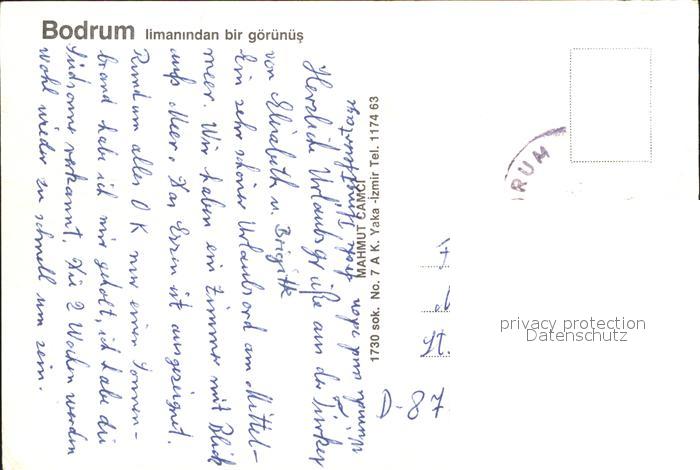 Bodrum limanından bir görünüş
Herzliche Urlaubsgrüße aus der Türkei
von Elisabeth u. Brigitte
Ein sehr schöner Urlaubsord am Mittel-
meer. Wir haben ein Zimmer mit Blick
aufs Meer. Das Essen ist ausgezeignet.
Rundum alles OK nur einen Sonnen-
brand habe ich mir geholt, ich habe die
Südsonne verkannt. Die 2 Wochen werden
wohl wieder zu schnell um sein.
Wünsche euch schon frohe
MAHMUT CAMCI
1730 sok. No. 7 A K. Yaka -Izmir Tel. 1174 63
RUM
D-87
privacy protection
Datenschutz